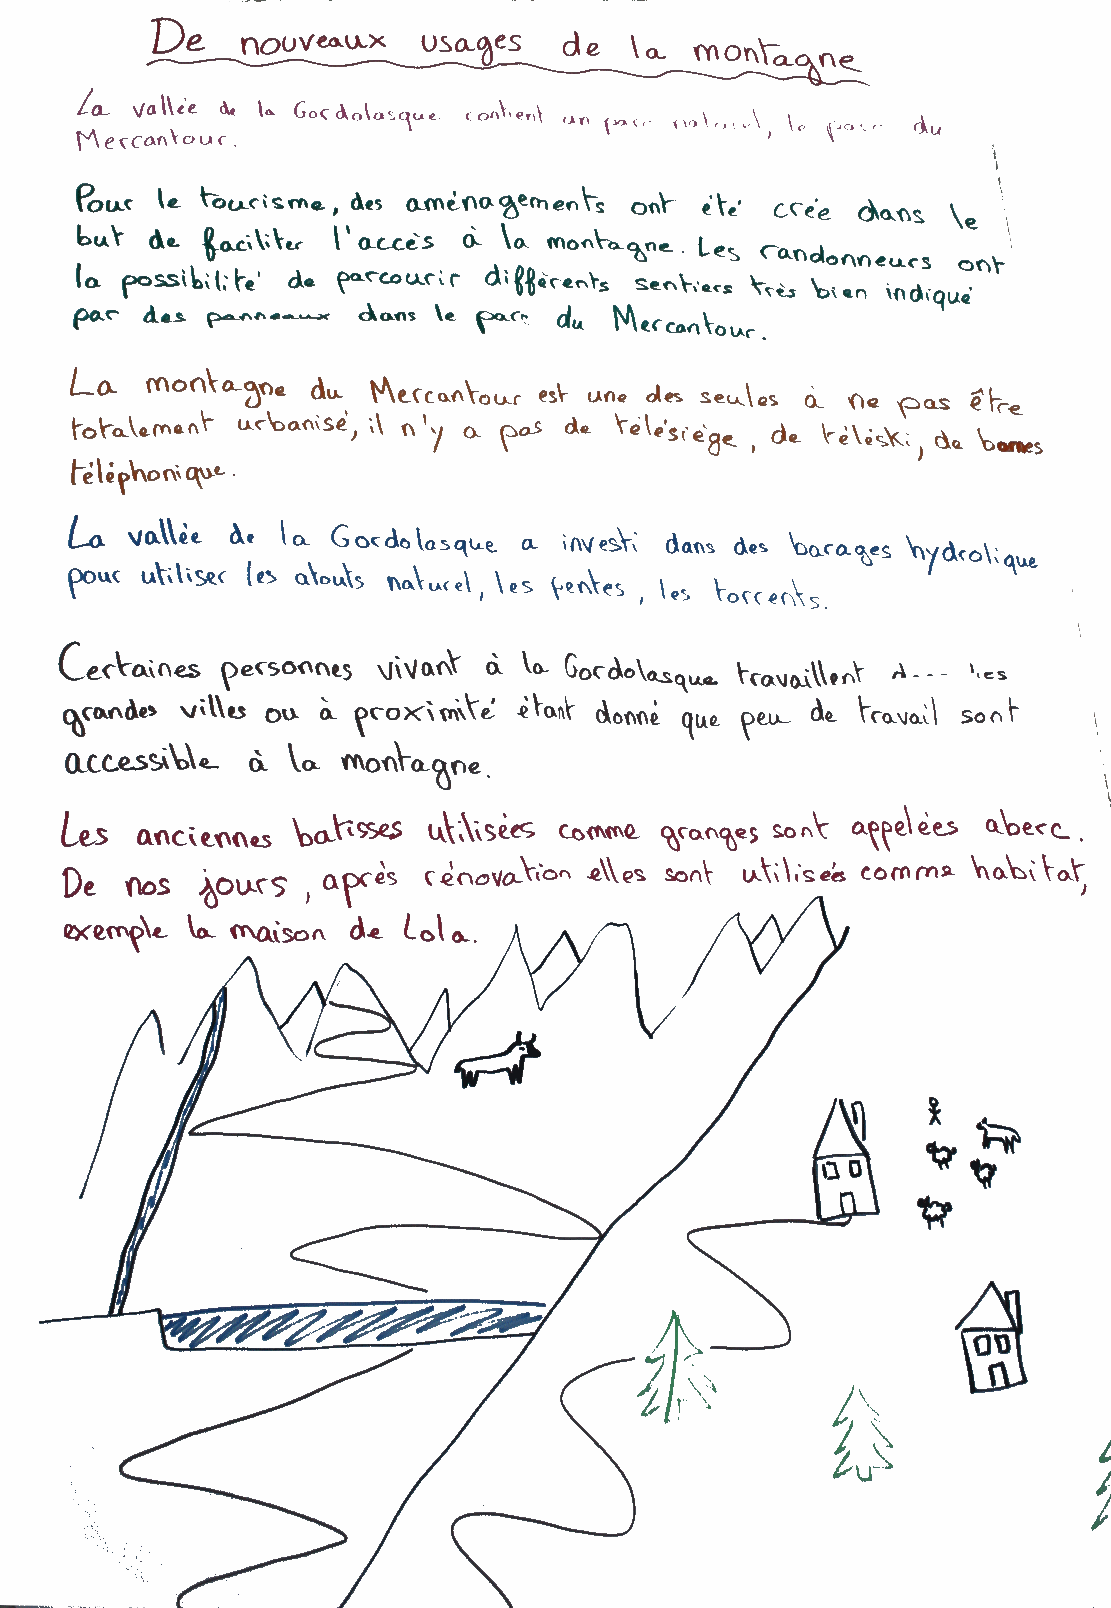 De nouveaux usages de la montagne
La vallée de la Gordolasque contient un parc naturel, le parc du
Mercantour.
Pour le tourisme, des aménagements ont été crée dans le
but de faciliter l'accès à la montagne. Les randonneurs ont
la possibilité de parcourir différents sentiers très bien indiqué
par des panneaux dans le parc du Mercantour.
La montagne du Mercantour est une des seules à ne pas être
totalement urbanisé, il n'y a pas de télésiège, de téléski, de
téléphonique.
La vallée de la Gordolasque a investi dans des barages hydrolique
pour utiliser les atouts naturel, les pentes, les torrents.
Certaines personnes vivant à la Gordolasque travaillent
grandes villes ou à proximité étant donné que peu de travail sont
accessible à la montagne.
Les anciennes batisses utilisées comme granges sont appelées aberc.
De nos jours, après rénovation elles sont utilisées comme habitat,
exemple la maison de Lola.